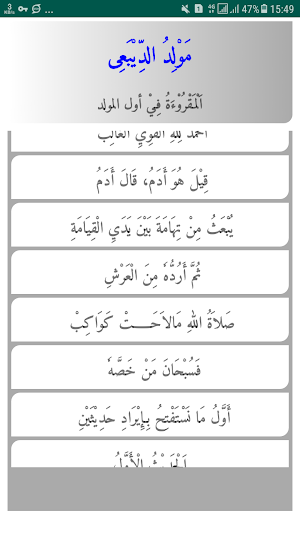 15:49
47%
مَوْلِدُ الدِّيْبَعِى
اَلْمَقْرُوْءَةُ فِيْ أول المولد
اَلْحَمْدُ لِلّٰهِ الْقَوِيِّ الْغَالِبِ
قِيْلَ هُوَ أَدَمُ، قَالَ أَدَمُ
يُبْعَثُ مِنْ تِهَامَةَ بَيْنَ يَدَيِ الْقِيَامَةِ
ثُمَّ أَرُدُّهُ مِنَ الْعَرْشِ
صَلاَةُ اللهِ مَالاَحَـــتْ كَوَاكِبْ
فَسُبْحَانَ مَنْ خَصَّهُ
أَوَّلُ مَا نَسْتَفْتِحُ بِإِيْرَادِ حَدِيْثَيْنِ
اَلْحَدِيْثُ الْأَوَّلُ